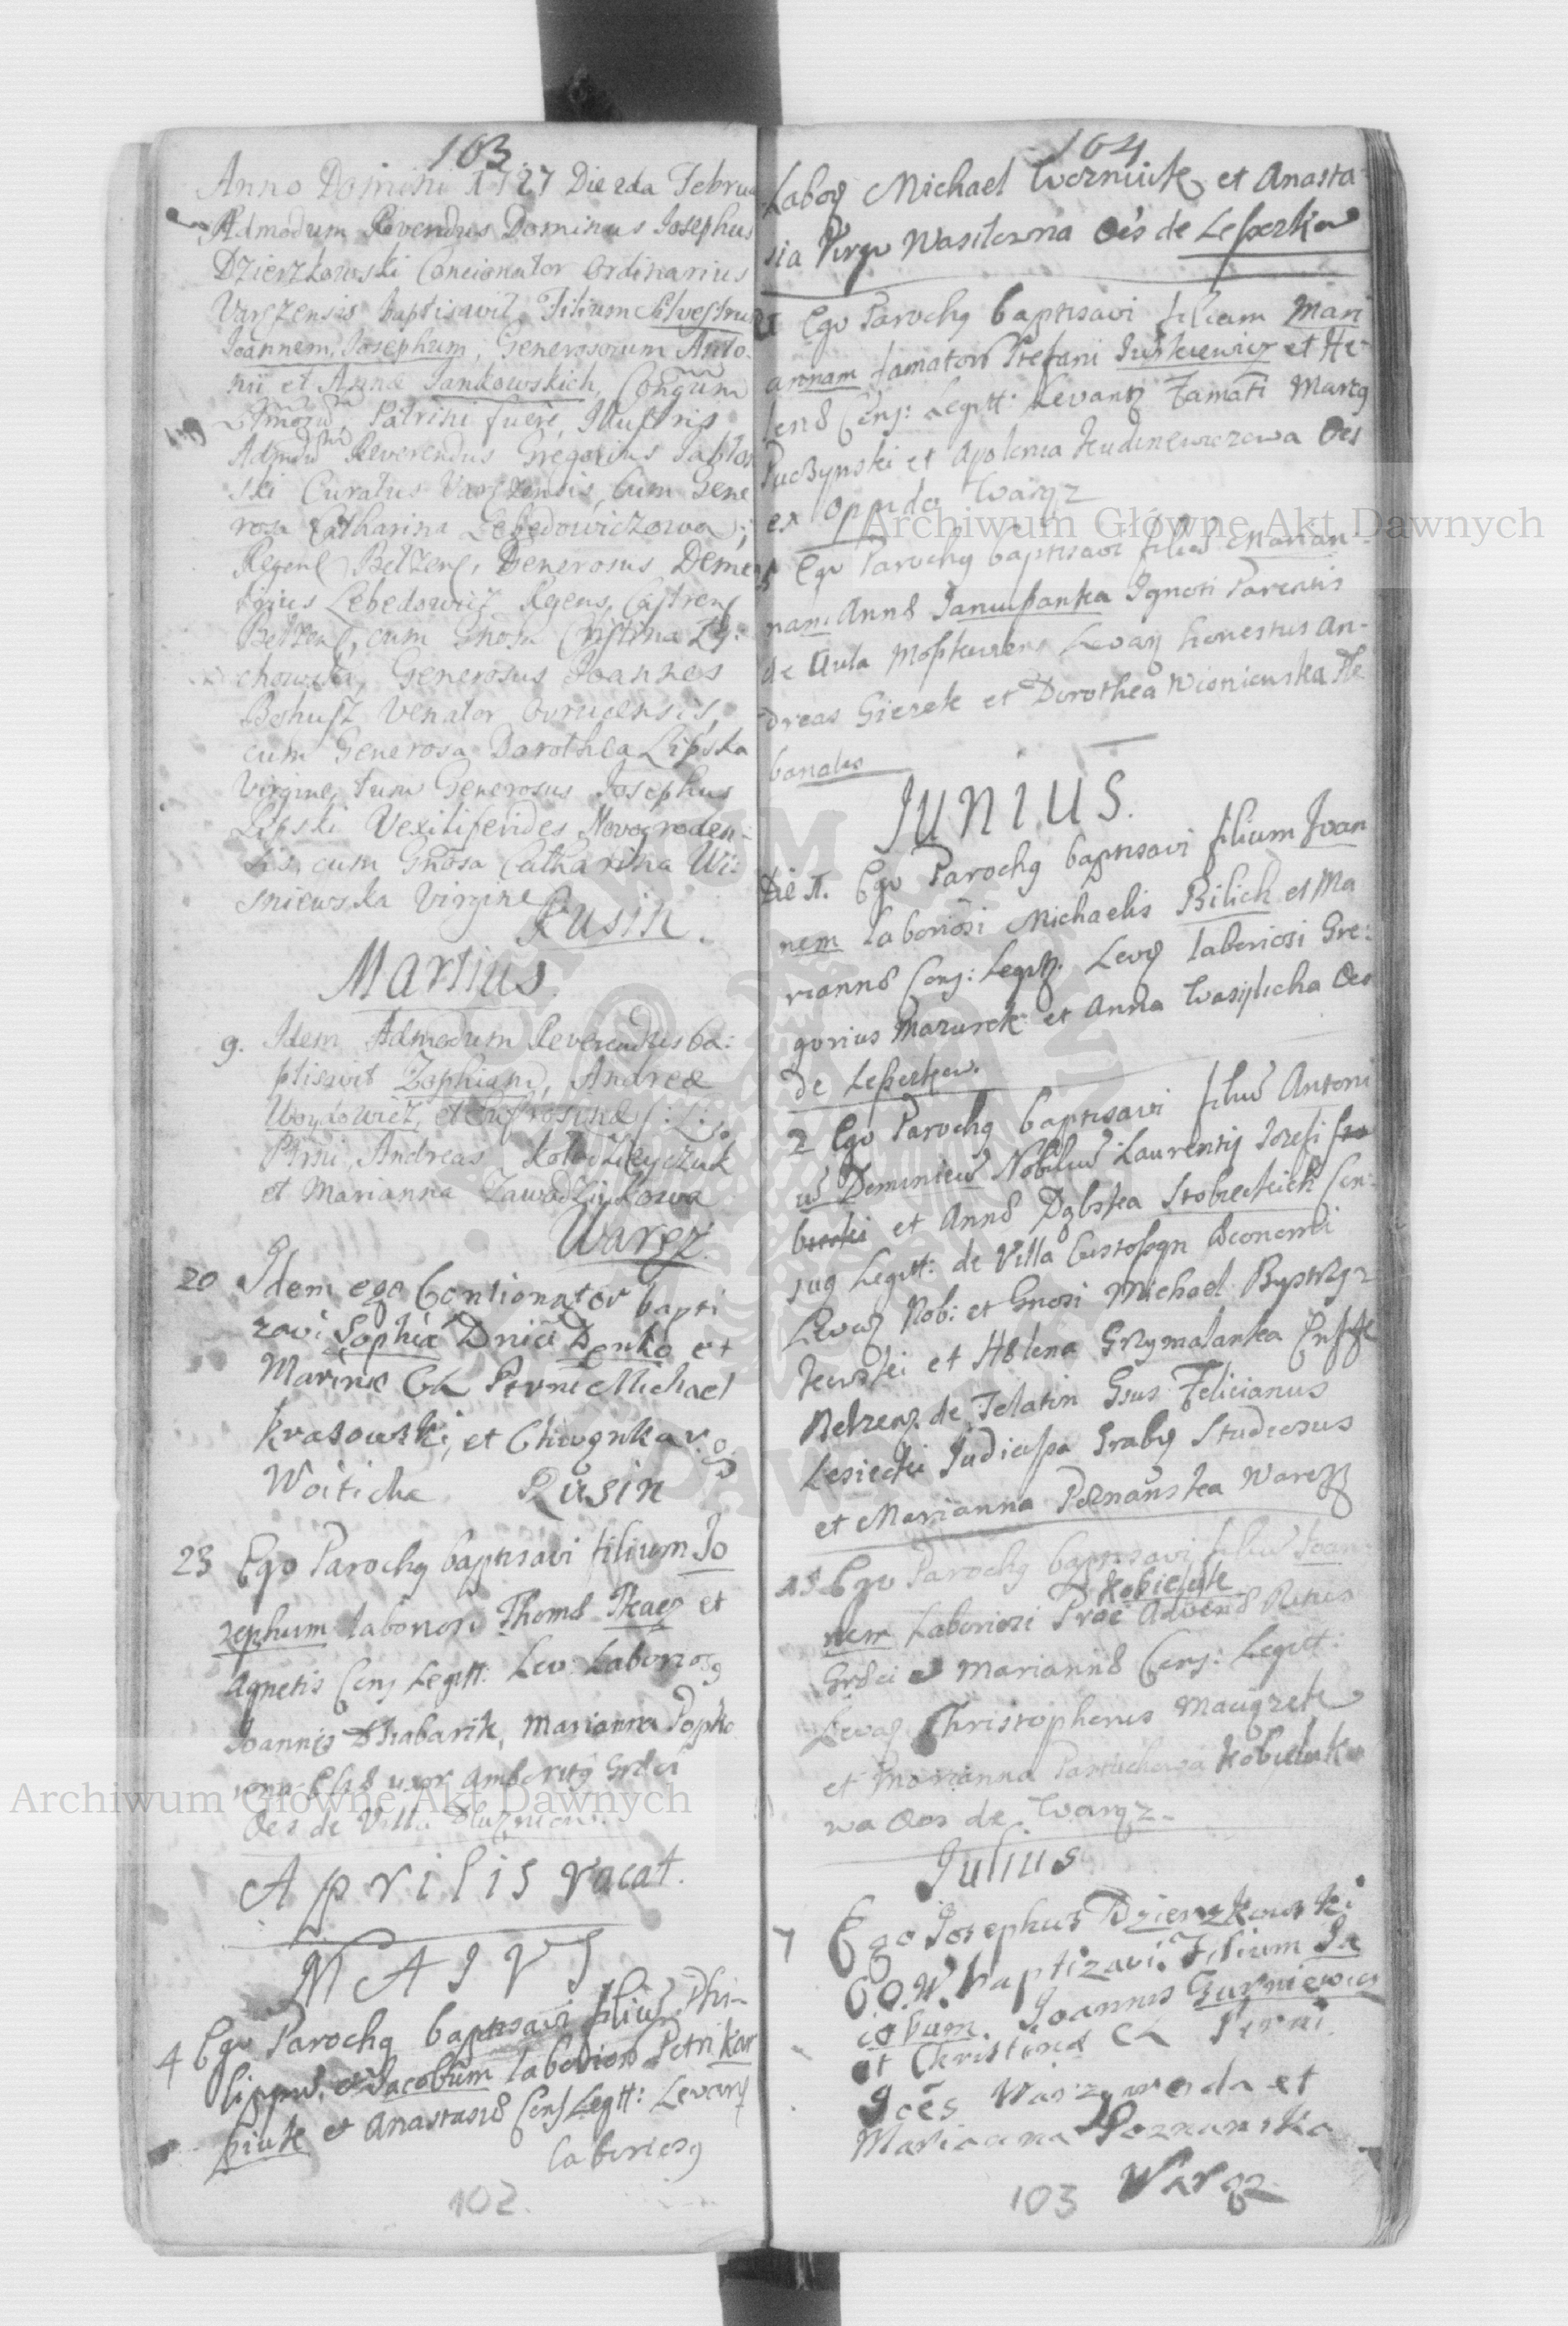 103
Anno Domini 1727 Die 2da Februa
Admodum Revendus Dominus Josephus
Dzierzkowski Concionator Ordinarius
Varszensis baptisavit Filium Silvestrum
Joannem, Josephum, Generosorum Anto-
nii et Annæ Jankowskich, Congum
Patrini fuere, Illustris
Admdu Reverendus Gregorius Jablon
ski Curatus Varszensis, cum Gene
rosa Catharina Lebedowiczowa,
Regene Belzens, Generosus Deme
trius Lebedowicz Regens Castrens
Belzens, cum Gnosa Cristina Zy:
chowska, Generosus Joannes
Bohusz Venator Owrucensis,
cum Generosa Dorothea Lipska
Virgine, tum Generosus Josephus
Lipski Vexiliferides Novogroden-
sis, cum Gnosa Catharina Wi:
sniewska Virgine
Rusin.
Martius.
9. Idem Admodum Reverendus ba:
ptisavit Zophiam, Andreæ
Woydowicz, et Eufrosinæ C: L:
Ptrni Andreas Kolodzieyczuk
et Marianna Zawadzinkowa
Waręz.
20 Idem ego Contionator bapti
zavi Sophiã Dnici Denko et
Marinæ CL Ptrni Michael
Krasowski, et Chwęnka
Woiticha Rusin
23 Ego Parochq baptisavi filium Jo
zephum laborios Thomæ Tkacz et
Agnetis Conj Legitt: Lev: Laborioq
Joannes Hrabarik, Marianna Popko
wna uxor
Oes de Villa Dluzniow.
Aprilis vacat.
MAIVS
4 Ego Parochq baptisavi filiũ Phi-
lippũ et Jacobum laborioso Petri Kar
piuk et Anastasiæ Conj Legitt: Levant
laboriosq
102.
104
Laboq Michael Wozniuk et Anasta
sia Virgo Wasilowna Oes de Leszczkow
Ego Parochq baptisavi filiam Mari
annam famatorũ Stefani Juskiewicz et He-
lenæ Conj: Legitt: Levantq Famati Marcq
Puczynski et Apolonia Kudinewiczowa Oes
ex oppido Waręz
Ego Parochq baptisavi filiã Marian-
nam Annæ Januszanka Ignoti Parentis
de Aula Moszkuiens Levaq honestus An-
dreas Gierek et Dorothea Wisniewska Ple
banales
JUNIUS.
Die 1. Ego Parochq baptisavi filium Joan
nem laboriosi Michaelis Bilich et Ma
riannæ Conj: Legitt. Levq laboriosi Gre:
gorius Mazurek et Anna Wasylicha Oes
de Leszczkow.
2 Ego Parochq baptisavi filiũ Antoni
ũ Dominicũ Nobiliũ Laurentij Jozefi Sro
brecki et Annæ Dąbska Srobreckich Con-
jug Legitt: de Villa Œconomi
Levaq Nob: et Gnosi Michael Bystrzy
kowski et Helena Grzymalanka
Belzens de Telatin Gsus Felicianus
Lesiecki Studiosus
et Marianna Poznanska Waręz
15 Ego Parochq baptisavi filiũ Joan
nem Laboriosi Kobieluk Ritus
Græci et Mariannæ Conj: Legitt:
Levaq Christophorus Maugzek
et Marianna Pastuchowa Kobieluko
wa Oes de Waręz.
Julius
7 Ego Josephus Dzierzkowski
C.O.W. baptizavi Filium Ja
cobum Joannis Gurniewicz
et Christinæ CL Ptrni.
Joes Warzywoda et
Marianna Poznanska
Waręz
103
Archiwum Główne Akt Dawnych
Archiwum Główne Akt Dawnych
ARCHIWUM GŁÓWNE AKT DAWNYCH